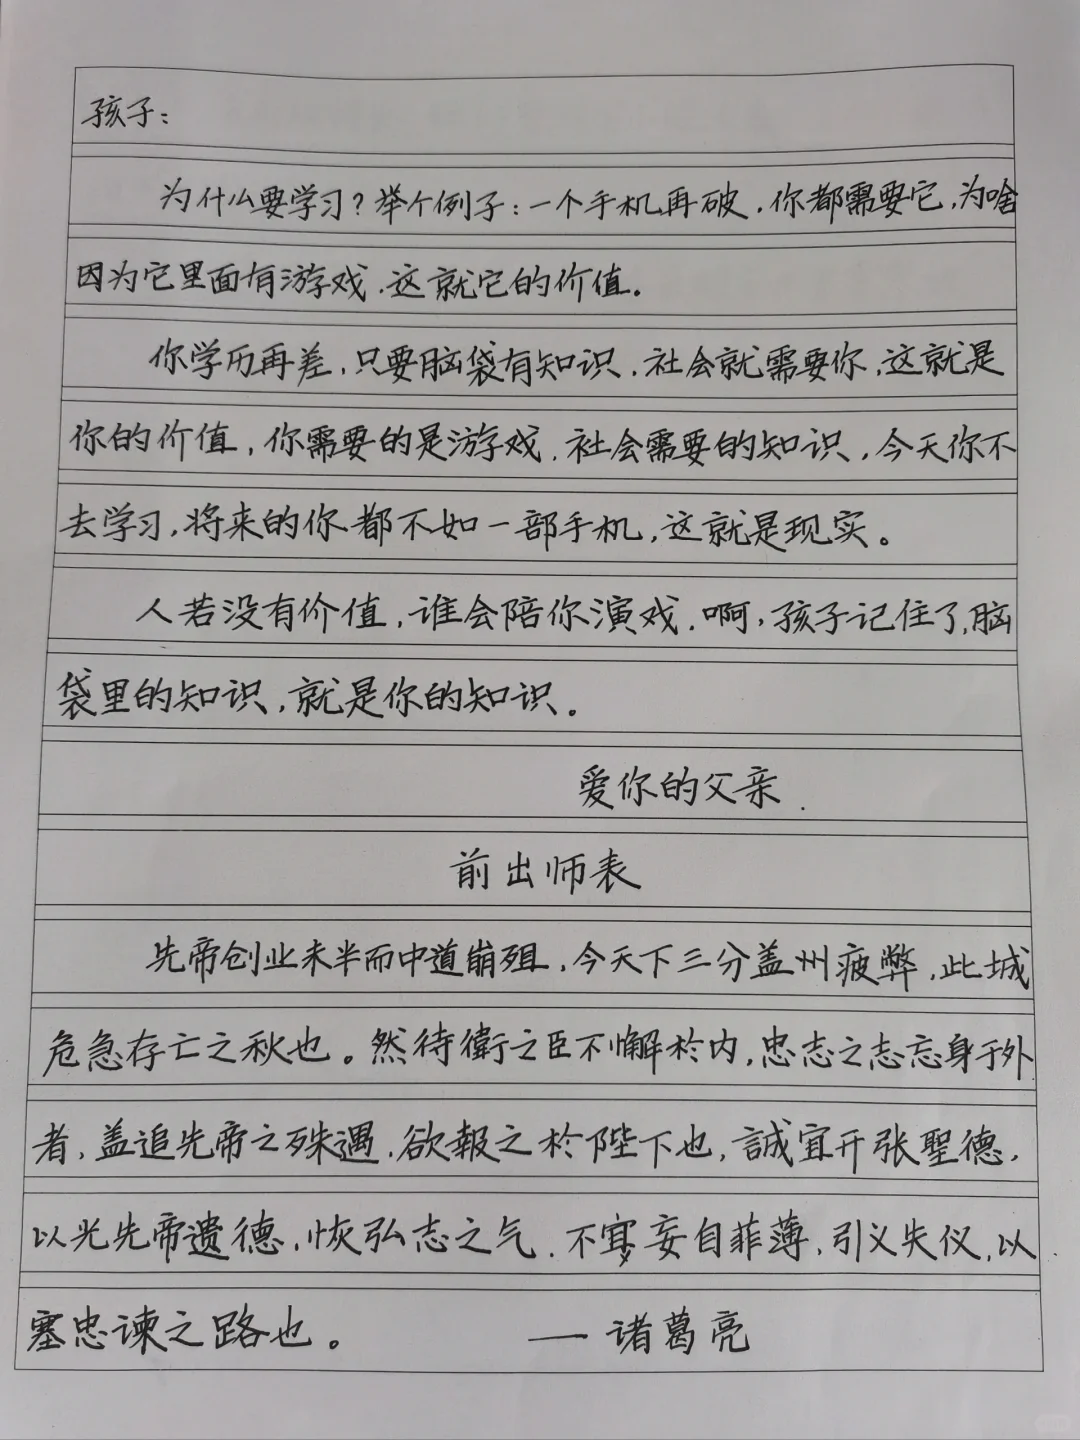 孩子：
为什么要学习？举个例子：一个手机再破，你都需要它，为啥
因为它里面有游戏，这就它的价值。
你学历再差，只要脑袋有知识，社会就需要你，这就是
你的价值，你需要的是游戏，社会需要的知识，今天你不
去学习，将来的你都不如一部手机，这就是现实。
人若没有价值，谁会陪你演戏，啊，孩子记住了，脑
袋里的知识，就是你的知识。
爱你的父亲.
前出师表
先帝创业未半而中道崩殂，今天下三分盖州疲弊，此城
危急存亡之秋也。然待衛之臣不懈於内，忠志之志忘身于外
者，盖追先帝之殊遇，欲報之於陛下也，誠宜开张聖德，
以光先帝遗德，恢弘志之气，不宜妄自菲薄，引义失仪，以
塞忠谏之路也。 —诸葛亮